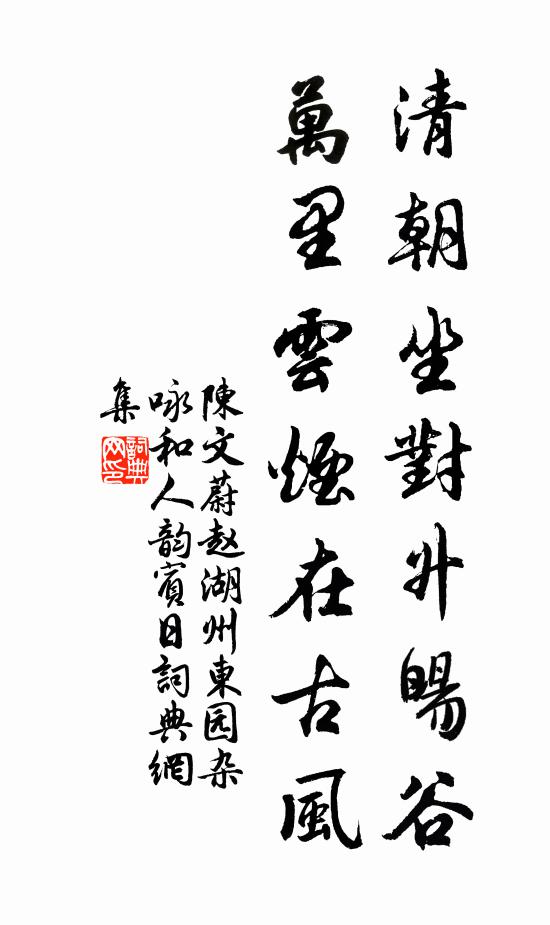 清朝坐對升暘谷
萬里雲煙在古風
陳文蔚赵湖州東园杂
咏和人韵賓日詞典網
集
詞典
网印